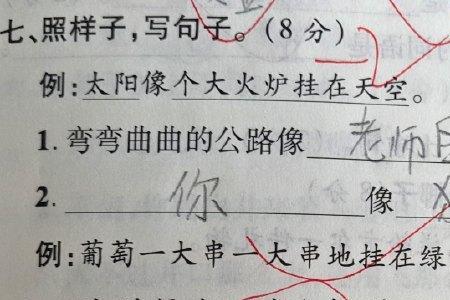 七、照样子,写句子。(8分) -2
例:太阳像个大火炉挂在天空。
1. 弯弯曲曲的公路像 老师
2. 你 像
例:葡萄一大串一大串地挂在绿